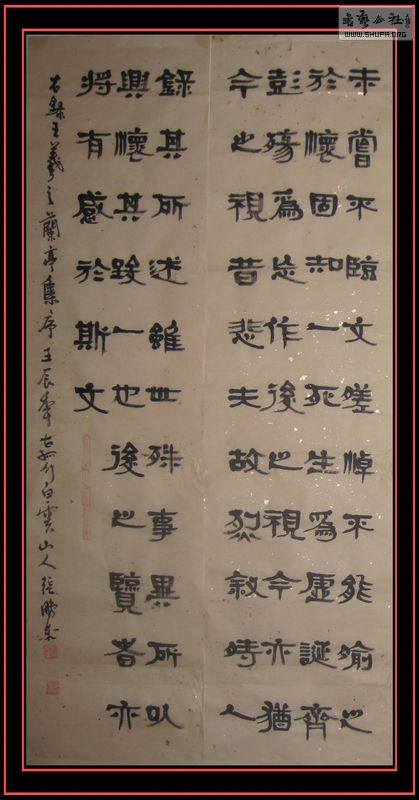 書藝公社
WWW.SHUFA.ORG
未嘗不臨文嗟悼不能喻之
於懷固知一死生為虛誕齊
彭殤為妄作後之視今亦猶
今之視昔悲夫故列敘時人
錄其所述雖世殊事異所以
興懷其致一也後之覽者亦
將有感於斯文
右錄王羲之蘭亭集序壬辰年古孤竹白雲山人張